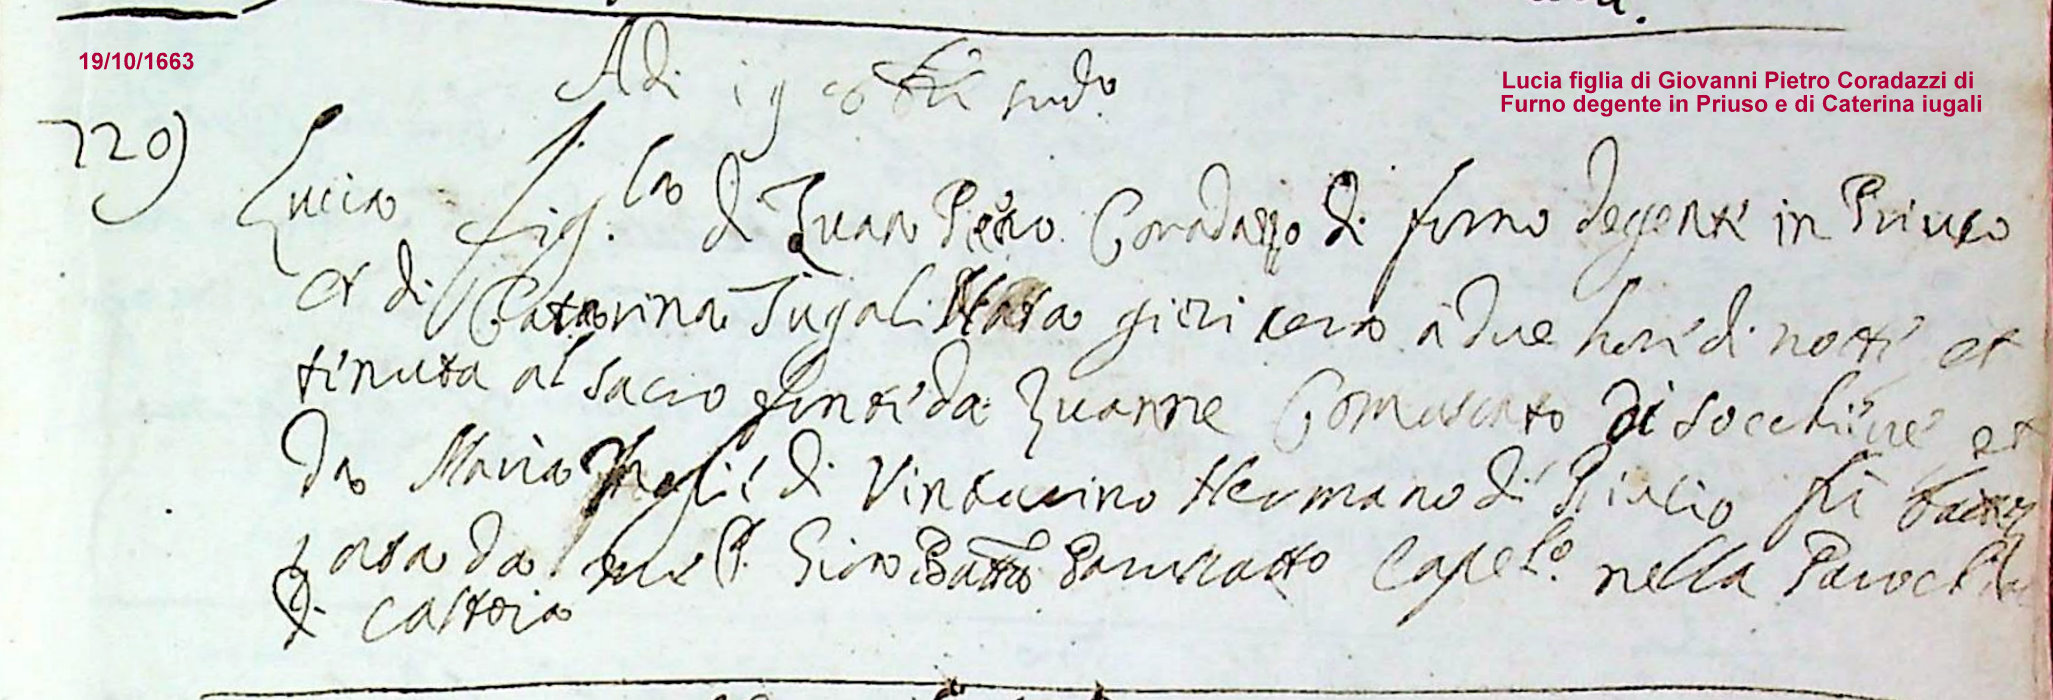 19/10/1663
Lucia figlia di Giovanni Pietro Coradazzi di
Furno degente in Priuso e di Caterina iugali
Adi 19 sud.o
720)
Lucia fig.la di Zuan Pietro Coradazzo di furno degente in Priuso
et di Catarina Jugali Nata gieri sera à due hore di notte et
tinuta al sacro fonte da Zuanne Comuscato di Socchieve et
da Maria moglie di Hermano di fù
zata da me P. Gio Batta Cape.lo nella Parochia
di Castoia